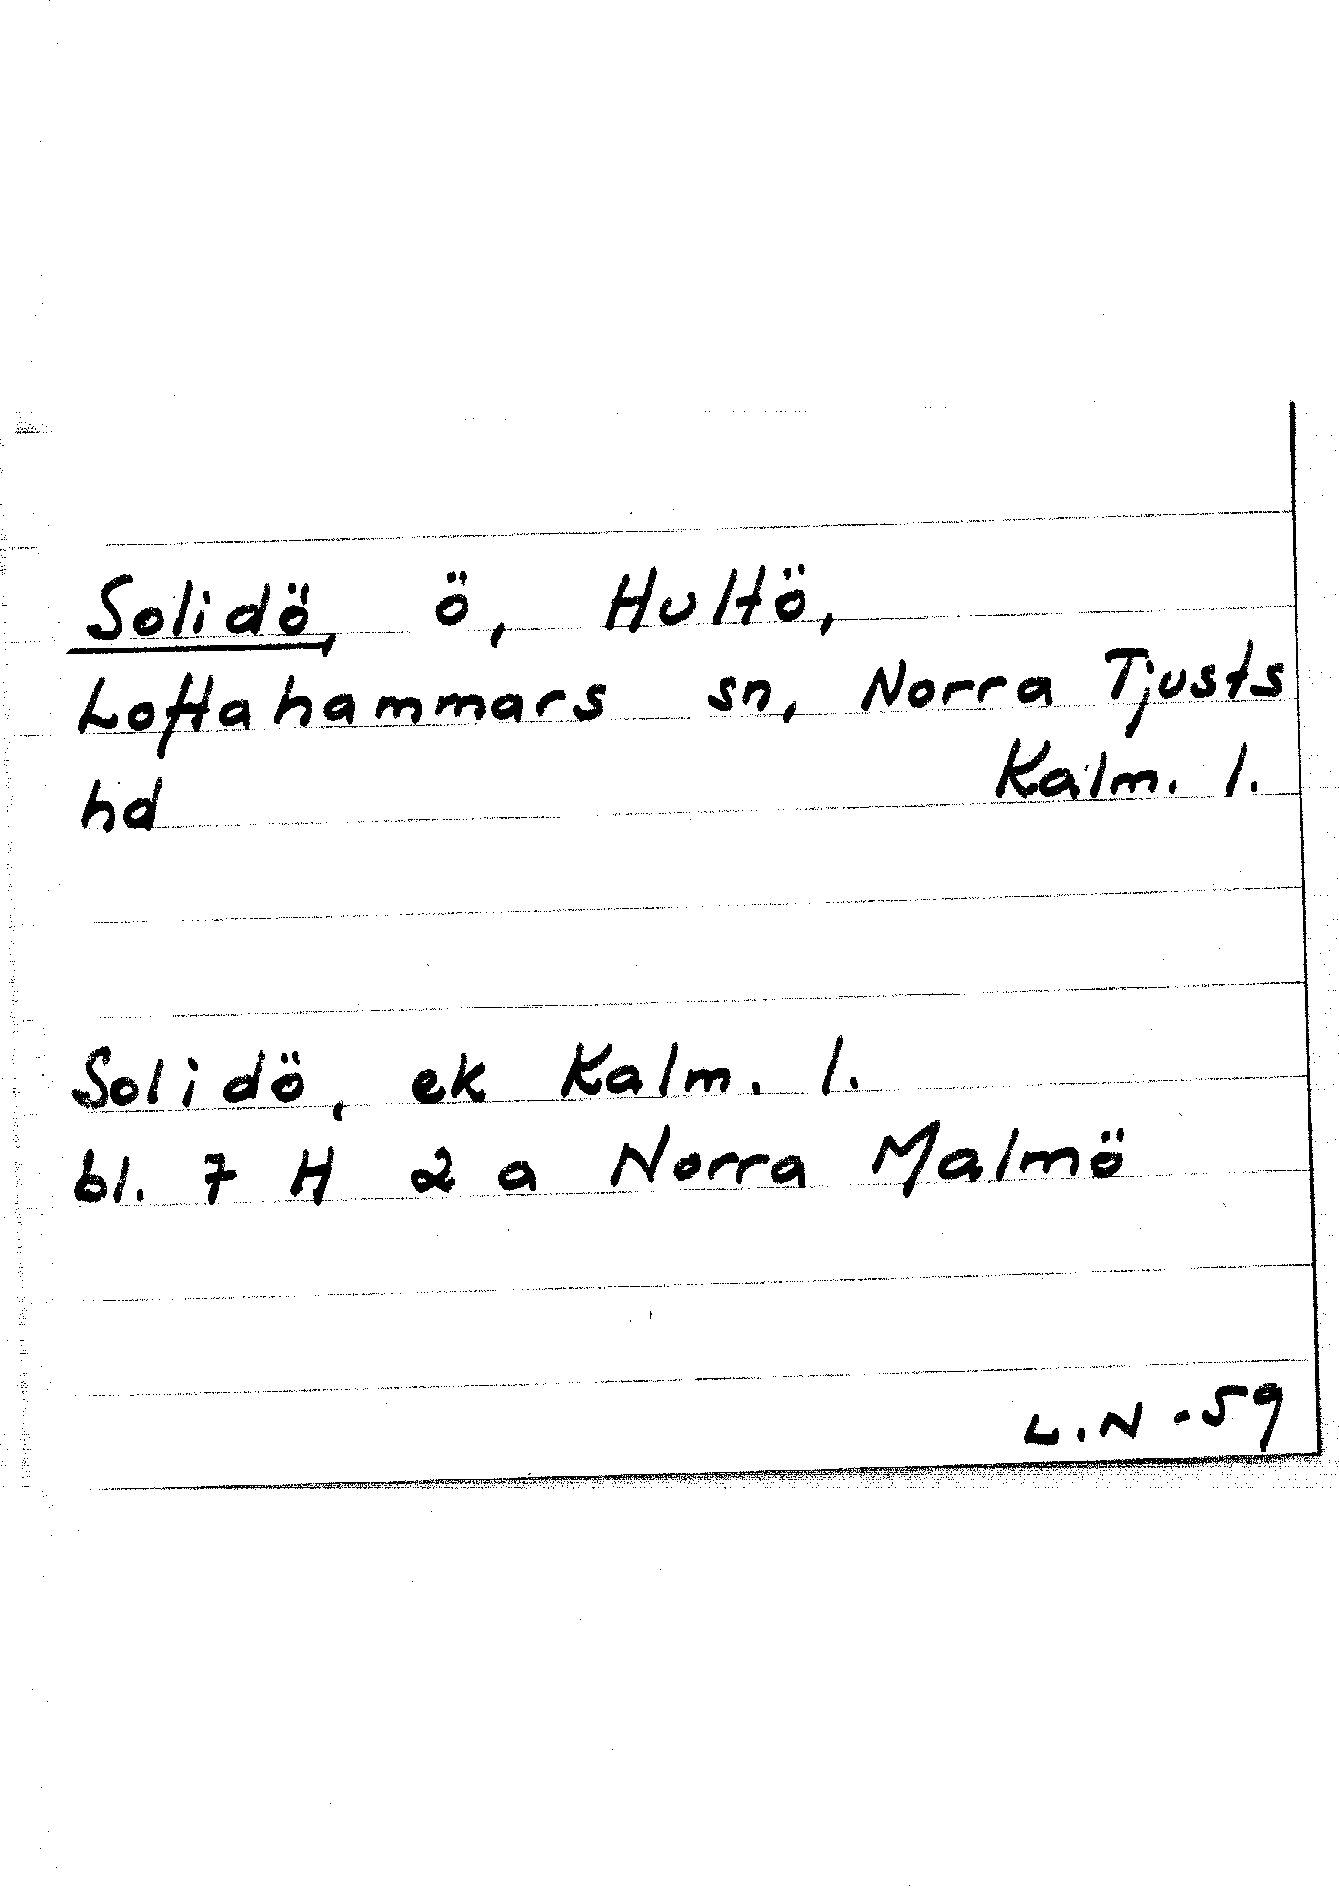 Solidö, ö, Hultö,
Loftahammars sn, Norra Tjusts
hd Kalm. l.
Solidö, ek Kalm. l.
bl. 7 H 2 a Norra Malmö
L.N -59